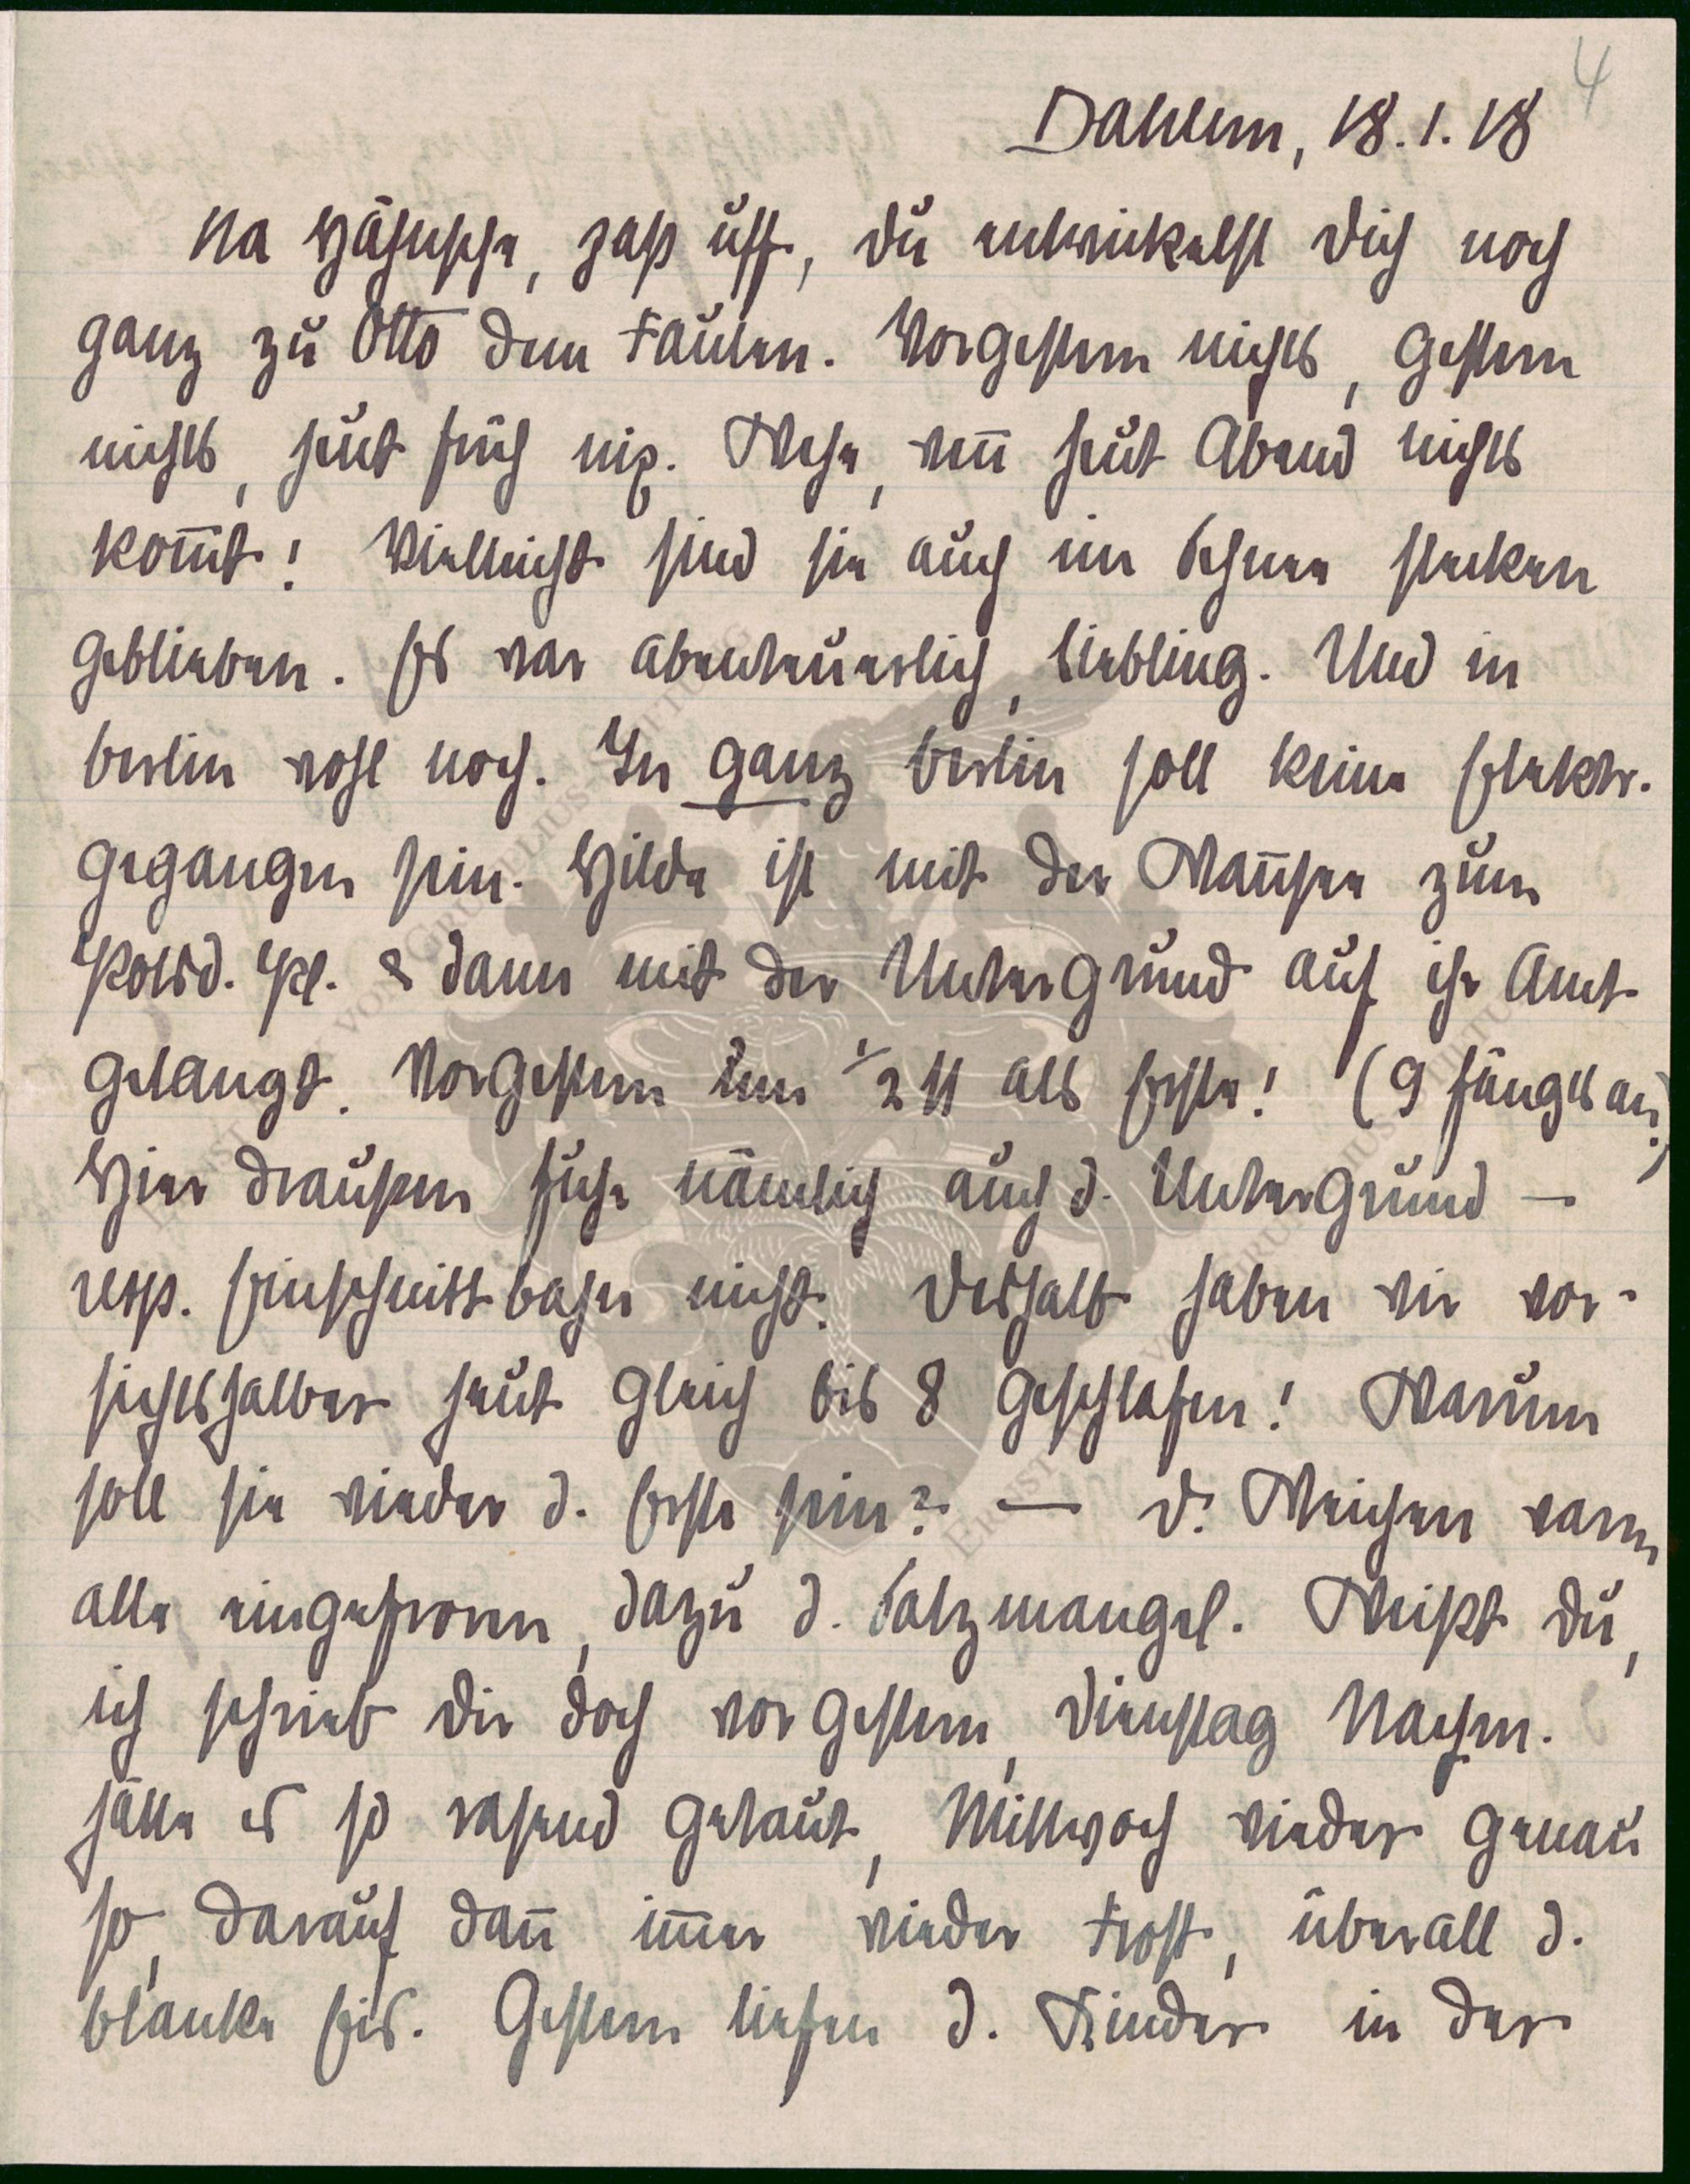 4
Dahlem, 18.1.18
Na Häseche, paß uff, Du entwickelst Dich noch
ganz zu Otto dem Faulen. Vorgestern nichts, gestern
nichts, heut früh nix. Wehe, wen̄ heut Abend nichts
kom̄t! Vielleicht sind sie auch im Schnee stecken
geblieben. Es war abenteuerlich, Liebling. Und in
Berlin wohl noch. In ganz Berlin soll keine Elektr.
gegangen sein. Hilde ist mit der Wan̄see zum
Potsd. Pl. & dann mit der Untergrund auf ihr Amt
gelangt. Vorgestern um 1/2 11 als Erste! (9 fängts an.)
Hier draußen fuhr nämlich auch d. Untergrund –
resp. Einschnittbahn nicht. Deshalb haben wir vor-
sichtshalber heut gleich bis 8 geschlafen! Warum
soll sie wieder d. Erste sein? — D. Weichen warn
alle eingefroren, dazu d. Salzmangel. Weißt Du,
ich schrieb Dir doch vorgestern, Dienstag Nachm.
hätte es so rasend getaut, Mittwoch wieder genau
so, darauf dan̄ im̄er wieder Frost, überall d.
blanke Eis. Gestern liefen d. Kinder in der
ERNST VON GRUNELIUS-STIFTUNG